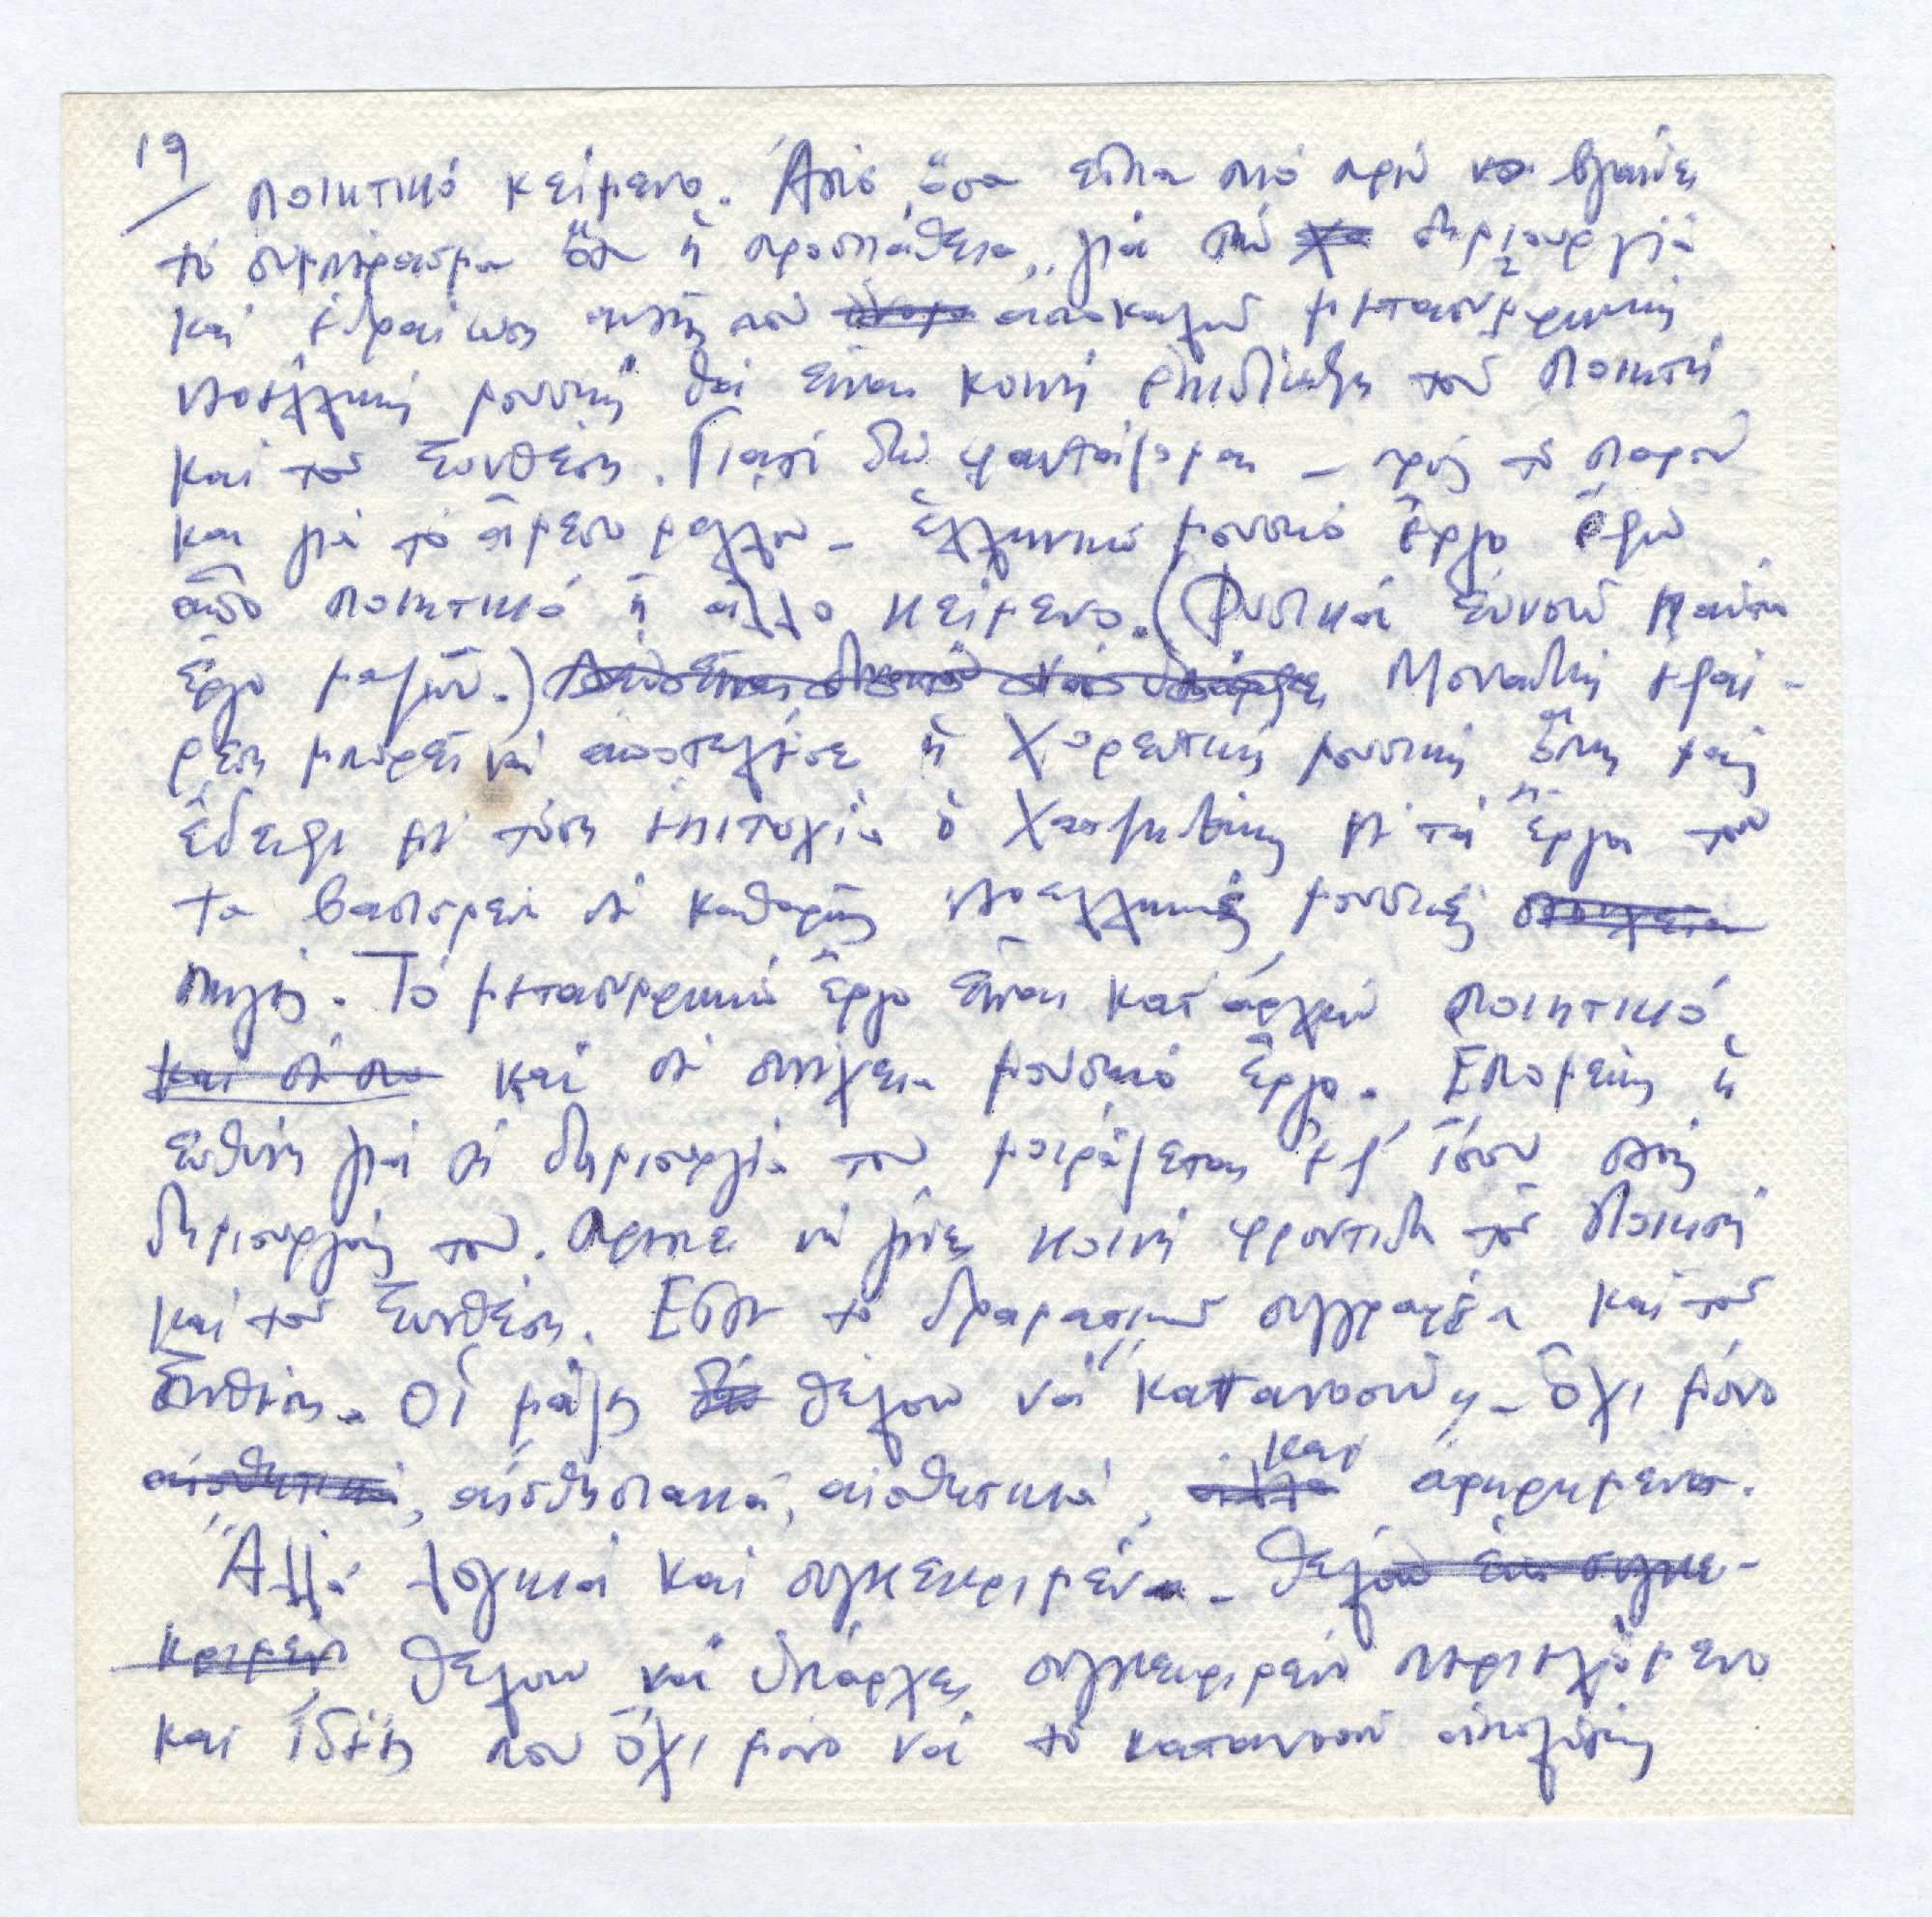 19
ποιητικό κείμενο. Ἀπό ὅσα εἶπα πιό πρίν βγαίνει
τό συμπέρασμα ὅτι ἡ προσπάθεια, γιά τήν δημιουργία
καί ἑδραίωση αὐτῆς πού ἀποκαλῶ μετασυμφωνική
νεοελληνική μουσική θά εἶναι κοινή ἐπιδίωξη τοῦ Ποιητῆ
καί τοῦ Συνθέτη. Γιατί δέν φαντάζομαι - πρός τό παρόν
και γιά τό ἄμεσο μέλλον - ἑλληνικό μουσικό ἔργο ἔξω
ἀπό ποιητικό ἤ ἄλλο κείμενο. (Φυσικά ἐννοῶ πάντα
ἔργο μαζῶν.) Μοναδική ἐξαί-
ρεση μπορεῖ νά ἀποτελέσει ἡ Χορευτική μουσική ὅπως μᾶς
ἔδειξε μέ τόση ἐπιτυχία ὁ Χατζηδάκις μέ τά ἔργα του
τα βασισμένα σέ καθαρῆς νεοελληνικές μουσικές
πηγές. Τό μετασυμφωνικό ἔργο εἶναι κατ' ἀρχήν ποιητικό
καί σέ συνέχεια μουσικό ἔργο. Επομένως ἡ
εὐθύνη γιά τή δημιουργία του μοιράζεται ἐξ' ἴσου στούς
δημιουργούς του. Πρέπει νά γίνει κοινή φροντίδα τοῦ Ποιητῆ
καί τοῦ Συνθέτη. Εδῶ το δραματικοῦ συγγραφέα καί τοῦ
Συνθέτη. Οἱ μάζες θέλουν νά "κατανοοῦν" - ὄχι μόνο
αἰσθησιακά, αἰσθητικά, και ἀφηρημένα.
"Ἀλλά λογικά καί συγκεκριμένα -
θέλουν νά ὑπάρχει συγκεκριμένο περιεχόμενο
και ἰδέες που ὄχι μόνο νά τό κατανοοῦν ἀπολύτως